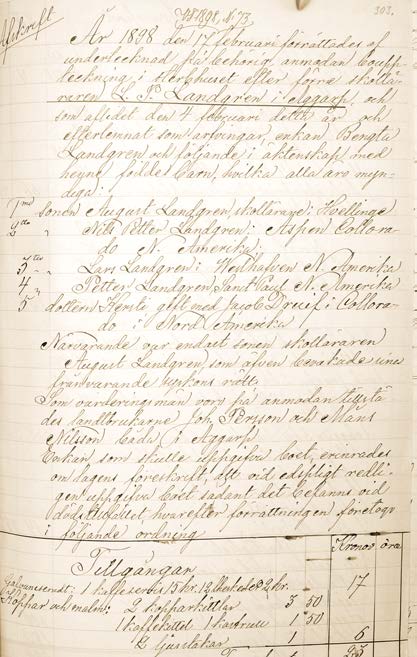 Afskrift
303.
År 1898 den 17 februari förrättades af
undertecknad, på behörig anmodan bouppteckning
i sterbhuset efter förre skollä-
raren L. P. Landgren i Aggarp, och
som aflidit den 4 februari detta år och
efterlemnat som arfvingar, enkan Bengta
Landgren och följande i äktenskap med
henne födde barn, hvilka alla äro myn-
diga:
1mo sonen August Landgren, skollärare i Hvellinge
2do " Nils Petter Landgren i Aspen Collora-
do N. Amerika;
3tio " Lars Landgren i N. Amerika
4 " Petter Landgren Sanct Paul N. Amerika
5 dottern Kersti gift med Jacob i Collora-
do i Nord Amerika
Närvarande var endast sonen skolläraren
August Landgren, som äfven bevakade sine
frånvarande syskons rätt.
Som värderingsmän voro på anmodan tillstä
des landtbrukarne Joh. Persson och Måns
Nilsson båda i Aggarp.
Enkan som skulle uppgifva boet, erinrades
om lagens föreskrift, att vid edspligt redli-
gen uppgifva boet sådant det befanns vid
dödstillfället, hvarefter förrättningen företogs
i följande ordning
Kronor öre
Tillgångar
1 kaffeservis 15 kr. 2 kr. 17
Koppar och malm: 2 kopparkittlar 3 50
1 kaffekittel 1 kastrull 1 50
2 ljustakar 1 6